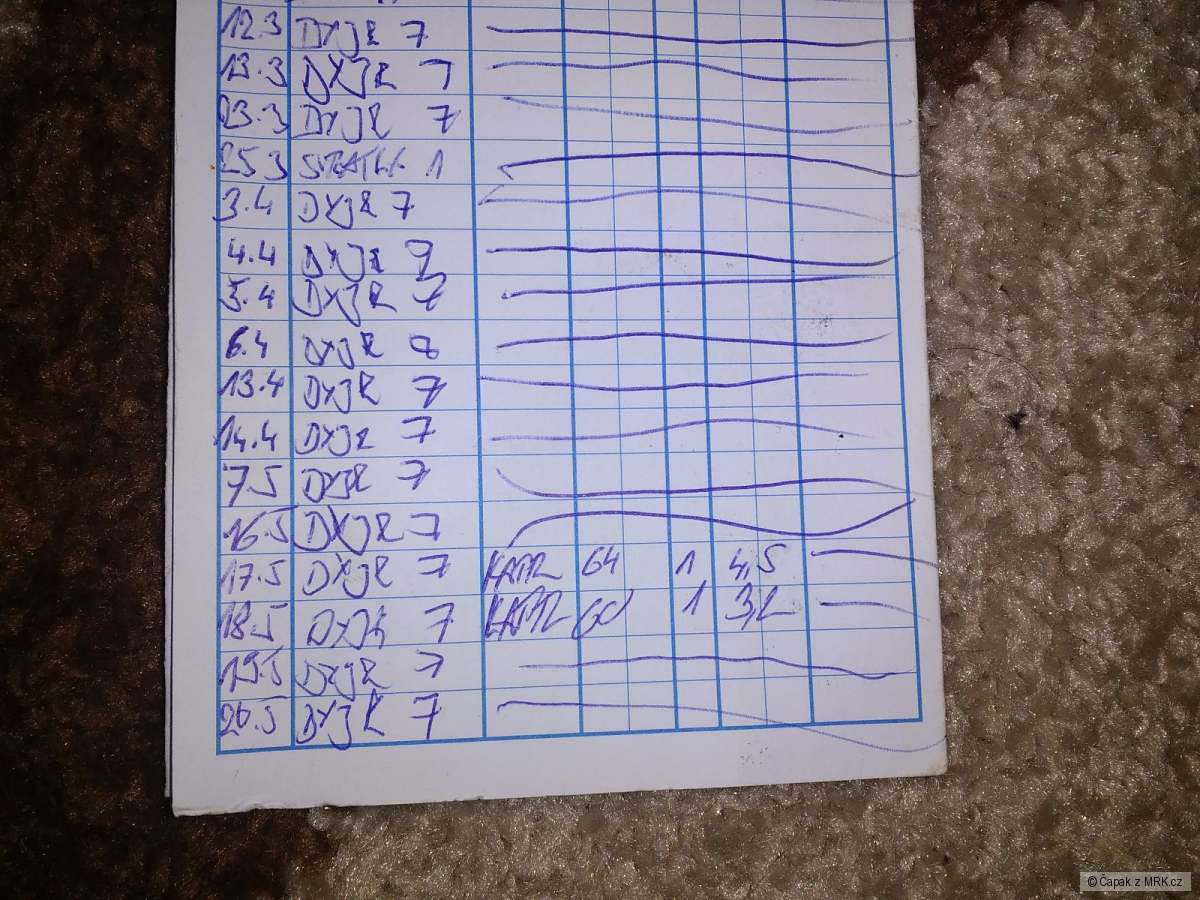 12.3 DYJE 7
13.3 DYJE 7
23.3 DYJE 7
25.3 1
3.4 DYJE 7
4.4 DYJE
5.4 DYJE 7
6.4 DYJE
13.4 DYJE 7
14.4 DYJE 7
7.5 DYJE 7
16.5 DYJE 7
17.5 DYJE 7 KAPR 64 1 4,5
18.5 DYJE 7 KAPR 60 1 3,2
19.5 DYJE 7
DYJE 7
© Čapak z MRK.cz